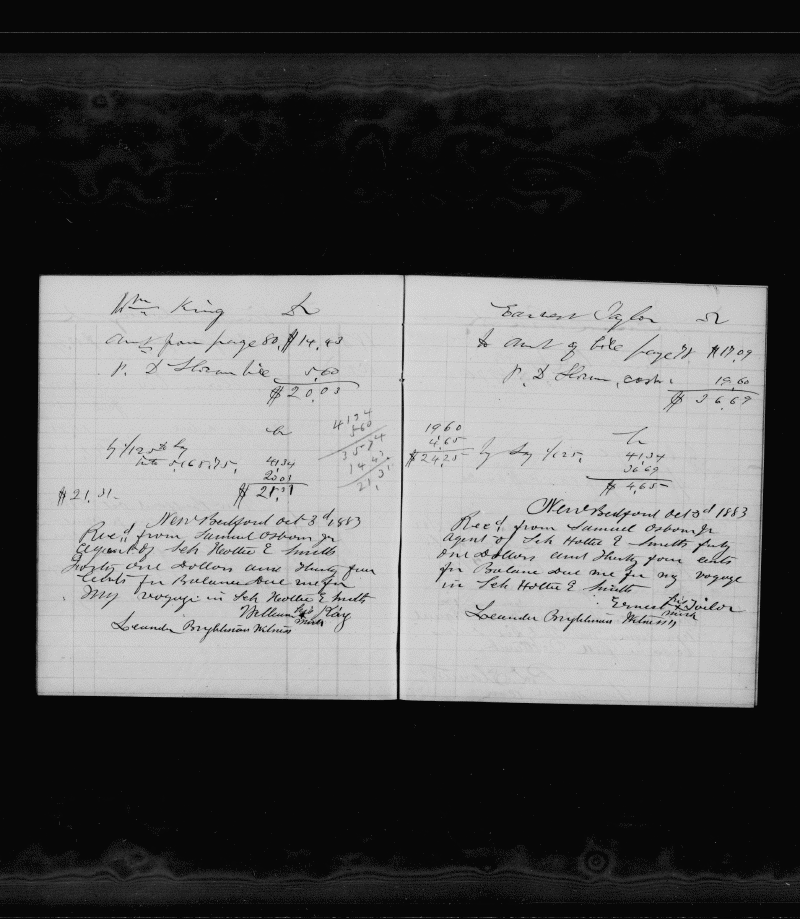 Wm King Dr
amt from page 80, $14,43
P. D. Slocum bill 5,60
$20,03
4134
560
3574
1443
21,31
Cr
by 1/125th lay
into 5,165,75, 4134
2003
$21,31 $21,31
New Bedford Oct 3d 1883
Rec'd, from Samuel Osborn Jr
Agent of Sch Hattie E Smith
Forty one Dollars and thirty four
Cents for Balance Due me for
My voyage in Sch Hattie E Smith
William his X mark Kay
Leander Brightman Witness
Earnest Taylor Dr
to amt of bill page 71 $17,09
P. D. Slocum, cash, 19,60
$36,69
1960
4,65
$24,25
Cr
by Lay 1/125, 41,34
36,69
$4,65
New Bedford Oct 3d 1883
Rec'd, from Samuel Osborn Jr
Agent of Sch Hattie E Smith forty
One Dollars and thirty four cents
for Balance Due me for my voyage
in Sch Hattie E Smith
Ernest his X mark Tailor
Leander Brightman Witness